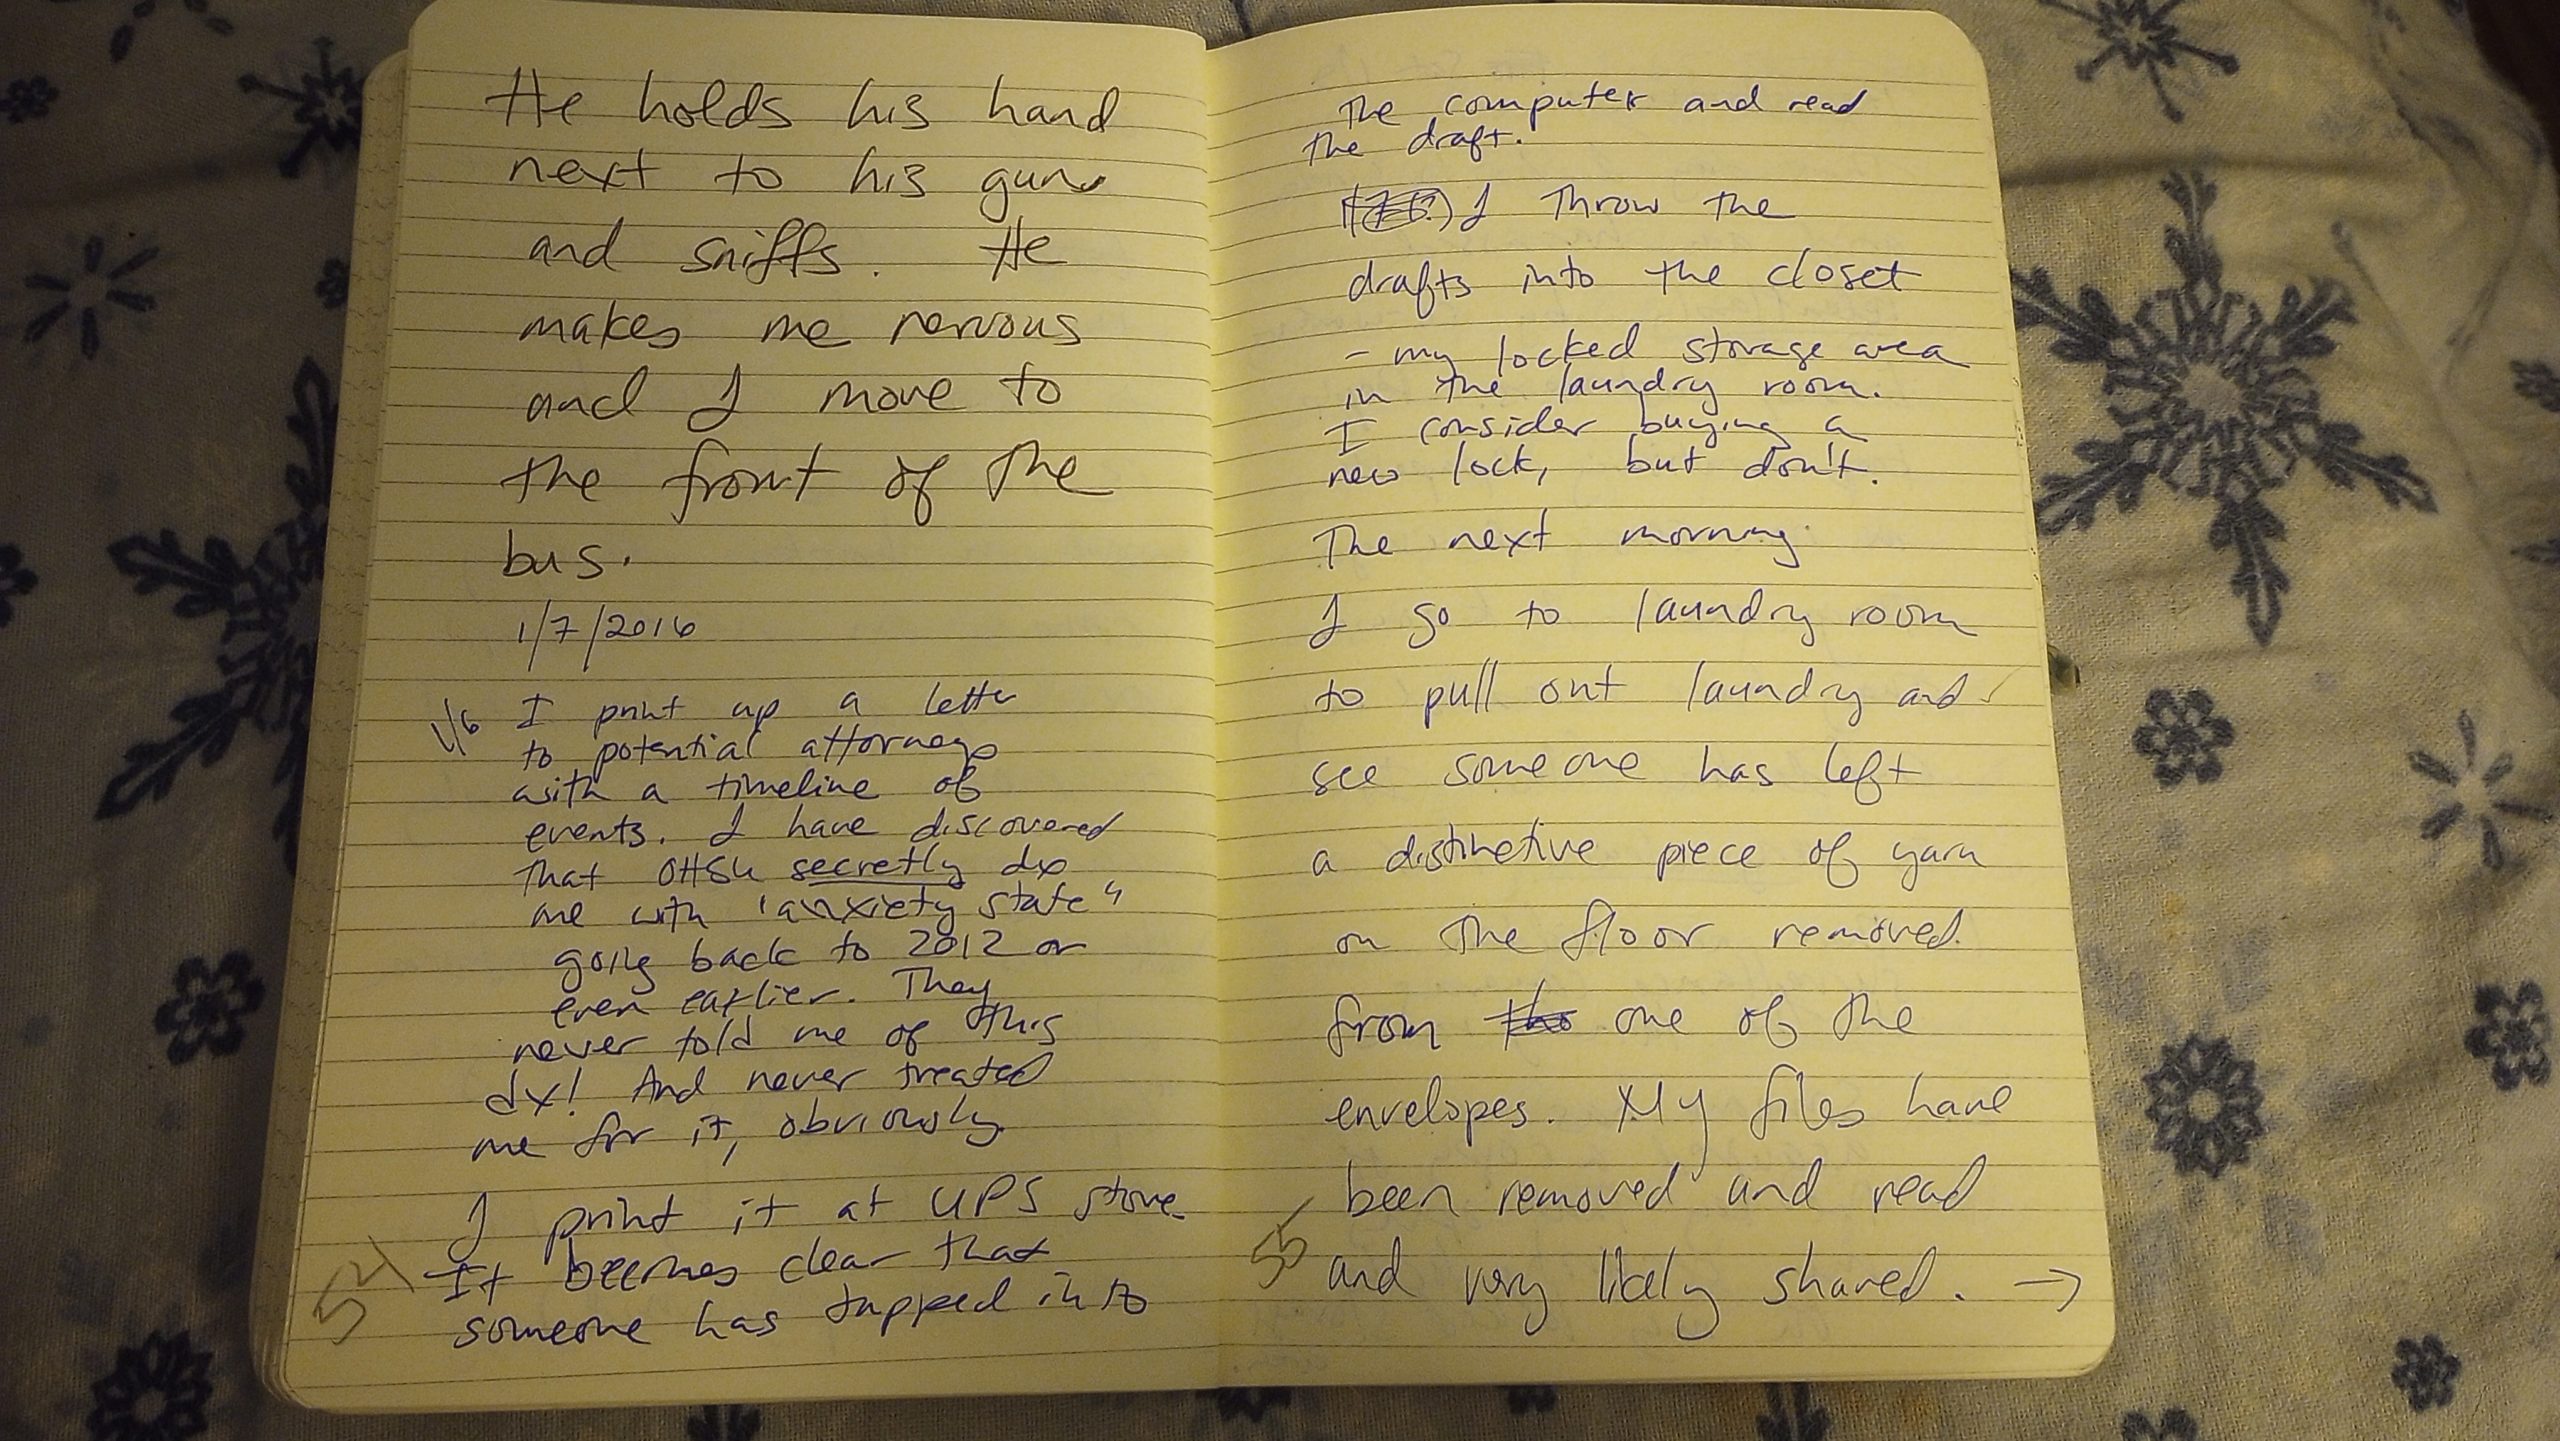 He holds his hand
next to his gun
and sniffs. He
makes me nervous
and I move to
the front of the
bus.
1/7/2016
1/6 I print up a letter
to potential attorneys
with a timeline of
events. I have discovered
that OHSU secretly dx
me with "anxiety state"
going back to 2012 or
even earlier. They
never told me of this
dx! And never treated
me for it, obviously.
I print it at UPS store.
It becomes clear that
someone has tapped into
54
the computer and read
the draft.
I throw the
drafts into the closet
- my locked storage area
in the laundry room.
I consider buying a
new lock, but don't.
The next morning
I go to laundry room
to pull out laundry and
see someone has left
a distinctive piece of yarn
on the floor removed
from the one of the
envelopes. My files have
been removed and read
and very likely shared. →
55